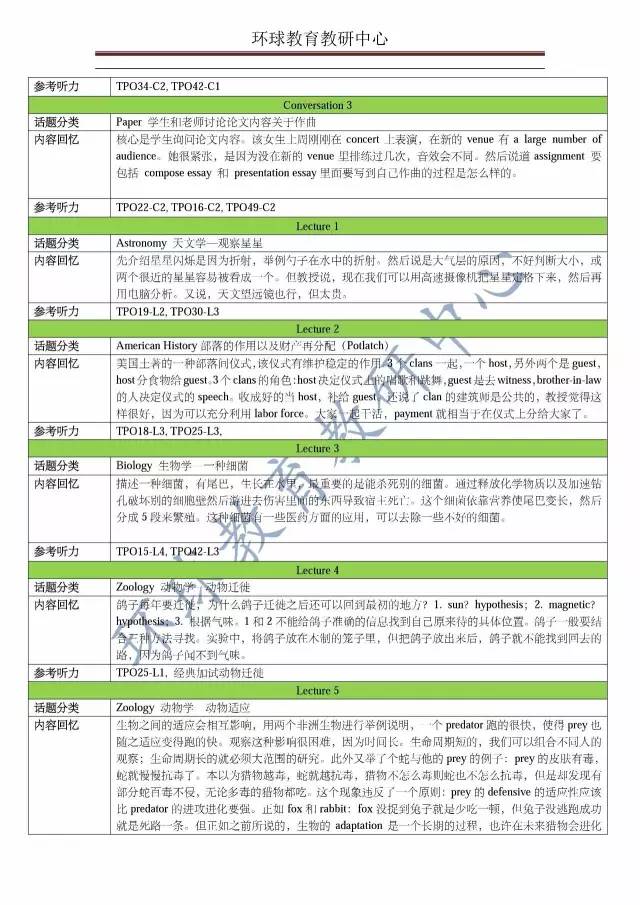 环球教育教研中心
参考听力 TPO34-C2, TPO42-C1
Conversation 3
话题分类 Paper 学生和老师讨论论文内容关于作曲
内容回忆 核心是学生询问论文内容。该女生上周刚刚在 concert 上表演，在新的 venue 有 a large number of
audience。她很紧张，是因为没在新的 venue 里排练过几次，音效会不同。然后说道 assignment 要
包括 compose essay 和 presentation essay 里面要写到自己作曲的过程是怎么样的。
参考听力 TPO22-C2, TPO16-C2, TPO49-C2
Lecture 1
话题分类 Astronomy 天文学—观察星星
内容回忆 先介绍星星闪烁是因为折射，举例勺子在水中的折射。然后说是大气层的原因，不好判断大小，或
两个很近的星星容易被看成一个。但教授说，现在我们可以用高速摄像机把星星定格下来，然后再
用电脑分析。又说，天文望远镜也行，但太贵。
参考听力 TPO19-L2, TPO30-L3
Lecture 2
话题分类 American History 部落的作用以及财产再分配（Potlatch）
内容回忆 美国土著的一种部落间仪式,该仪式有维护稳定的作用。3 个 clans 一起,一个 host,另外两个是 guest,
host 分食物给 guest。3 个 clans 的角色:host 决定仪式上的唱歌和跳舞,guest 是去 witness,brother-in-law
的人决定仪式的 speech。收成好的当 host，补给 guest。还说了 clan 的建筑师是公共的，教授觉得这
样很好，因为可以充分利用 labor force。大家一起干活，payment 就相当于在仪式上分给大家了。
参考听力 TPO18-L3, TPO25-L3,
Lecture 3
话题分类 Biology 生物学—一种细菌
内容回忆 描述一种细菌，有尾巴，生长在水里，最重要的是能杀死别的细菌。通过释放化学物质以及加速钻
孔破坏别的细胞壁然后游进去伤害里面的东西导致宿主死亡。这个细菌依靠营养使尾巴变长，然后
分成 5 段来繁殖。这种细菌有一些医药方面的应用，可以去除一些不好的细菌。
参考听力 TPO15-L4, TPO42-L3
Lecture 4
话题分类 Zoology 动物学—动物迁徙
内容回忆 鸽子每年要迁徙，为什么鸽子迁徙之后还可以回到最初的地方？1. sun? hypothesis；2. magnetic?
hypothesis；3. 根据气味。1 和 2 不能给鸽子准确的信息找到自己原来待的具体位置。鸽子一般要结
合三种方法寻找。实验中，将鸽子放在木制的笼子里，但把鸽子放出来后，鸽子就不能找到回去的
路，因为鸽子闻不到气味。
参考听力 TPO25-L1, 经典加试动物迁徙
Lecture 5
话题分类 Zoology 动物学—动物适应
内容回忆 生物之间的适应会相互影响，用两个非洲生物进行举例说明，一个 predator 跑的很快，使得 prey 也
随之适应变得跑的快。观察这种影响很困难，因为时间长。生命周期短的，我们可以组合不同人的
观察；生命周期长的就必须大范围的研究。此外又举了个蛇与他的 prey 的例子：prey 的皮肤有毒，
蛇就慢慢抗毒了。本以为猎物越毒，蛇就越抗毒，猎物不怎么毒则蛇也不怎么抗毒，但是却发现有
部分蛇百毒不侵，无论多毒的猎物都吃。这个现象违反了一个原则：prey 的 defensive 的适应性应该
比 predator 的进攻进化要强。正如 fox 和 rabbit：fox 没捉到兔子就是少吃一顿，但兔子没逃跑成功
就是死路一条。但正如之前所说的，生物的 adaptation 是一个长期的过程，也许在未来猎物会进化
环球教育教研中心